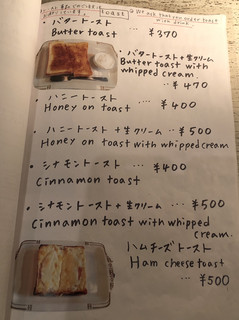 ・バタートースト … ¥370
Butter toast
・バタートースト+生クリーム
Butter toast with
whipped cream
… ¥470
・ハニートースト … ¥400
Honey on toast
・ハニートースト+生クリーム … ¥500
Honey on toast with whipped cream
・シナモントースト … ¥400
Cinnamon toast
・シナモントースト+生クリーム … ¥500
Cinnamon toast with whipped
cream.
ハムチーズトースト
Ham cheese toast
… ¥500